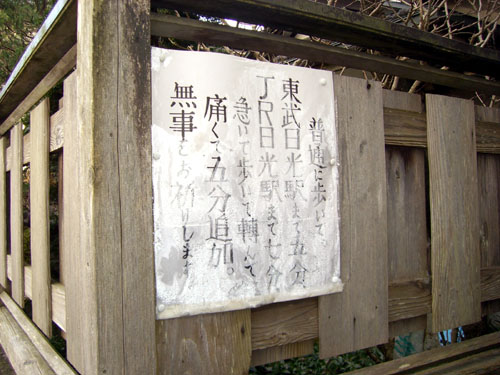 普通に歩いて。
東武日光駅まで五分
JR日光駅まで七分
急いで歩いて轉んで。
痛くて五分追加。
無事をお祈りします